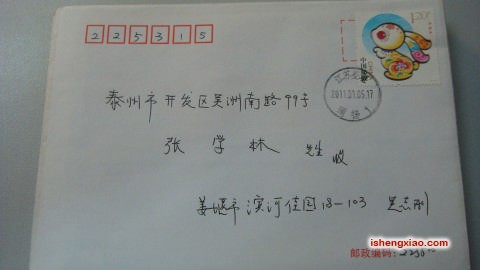 225315
1.20元
2011.01.05.17
泰州市开发区吴洲南路99号
张学林 先生 收
姜堰市滨河佳园18-103 吴志刚
ishengxiao.com
邮政编码: